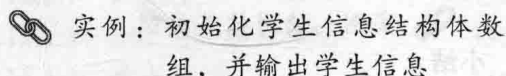 实例：初始化学生信息结构体数
组，并输出学生信息